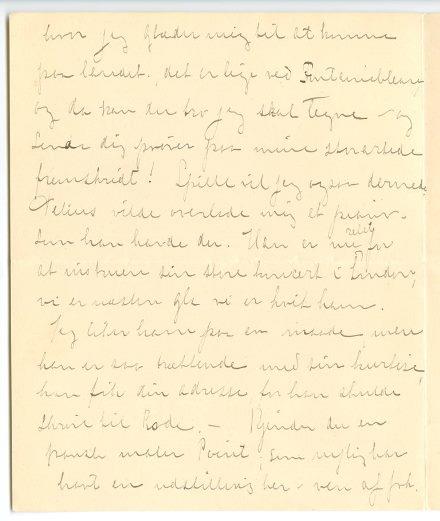 hvor jeg glæder mig til at komme
paa landet, det er lige ved Fontainebleau,
og da kan du tro jeg skal tegne og
sende dig prøver paa mine storartede
fremskridt! Spille vil jeg ogsaa dernede
vilde overlade mig et piano
som han havde der. Han er rejst for
at instruere sin store koncert i London,
vi er næsten gla vi er kvit ham.
Jeg liker ham paa en maade, men
han er saa trættende med sin kurtise,
han fik din adresse for han skulde
skrive til Rode. – Kjender du en
fransk maler Point, som nylig har
havt en udstilling her – ven af frk.